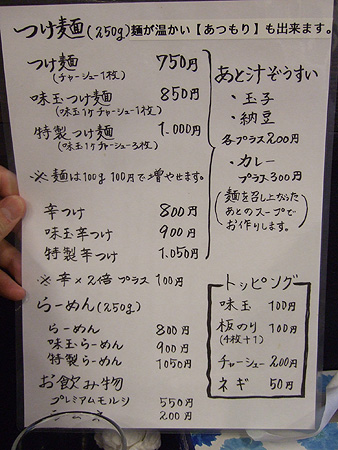 つけ麺(250g)麺が温かい【あつもり】も出来ます。
つけ麺 750円
(チャーシュー1枚)
味玉つけ麺 850円
(味玉1ケチャーシュー1枚)
特製つけ麺 1.000円
(味玉1ケチャーシュー3枚)
※ 麺は100g 100円で増やせます。
辛つけ 800円
味玉辛つけ 900円
特製辛つけ 1.050円
※ 辛×2倍 プラス 100円
らーめん(250g)
らーめん 800円
味玉らーめん 900円
特製らーめん 1050円
お飲み物
プレミアムモルツ 550円
200円
あと汁ぞうすい
・玉子
・納豆
各プラス200円
・カレー
プラス300円
(麺を召し上がった
あとのスープで
お作りします。)
トッピング
味玉 100円
板のり 100円
(4枚+1)
チャーシュー 200円
ネギ 50円